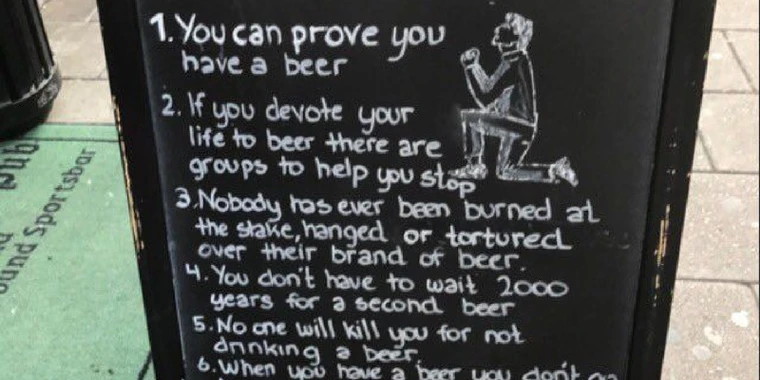 1. You can prove you
have a beer
2. If you devote your
life to beer there are
groups to help you stop
3. Nobody has ever been burned at
the stake, hanged or tortured
over their brand of beer.
4. You don't have to wait 2000
years for a second beer
5. No one will kill you for not
drinking a beer.
6. When you have a beer you don't go
pub
ound Sportsbar